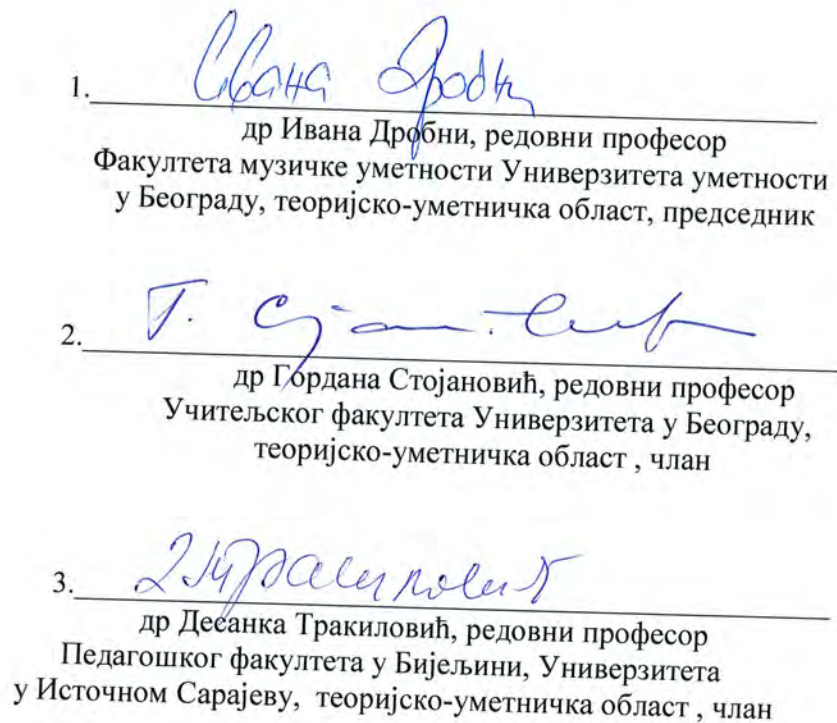 1. Ивана Дробни
др Ивана Дробни, редовни професор
Факултета музичке уметности Универзитета уметности
у Београду, теоријско-уметничка област, председник
2. Г. Стојановић
др Гордана Стојановић, редовни професор
Учитељског факултета Универзитета у Београду,
теоријско-уметничка област , члан
3.
др Десанка Тракиловић, редовни професор
Педагошког факултета у Бијељини, Универзитета
у Источном Сарајеву, теоријско-уметничка област , члан